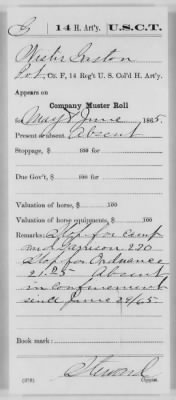 G | 14 H. Art'y. | U.S.C.T.
Gaston
Pvt., Co. F, 14 Reg't U. S. Col'd H. Art'y.
Appears on
Company Muster Roll
for May & June, 1865.
Present or absent Absent
Stoppage, $ 100 for
Due Gov't, $ 100 for
Valuation of horse, $ 100
Valuation of horse equipments, $ 100
Remarks: Stop for camp
and Garrison 2 20
Stop for Ordnance
21.25 Absent
in confinement
since June 24/65
Book mark:
Steward
(358) Copyist.